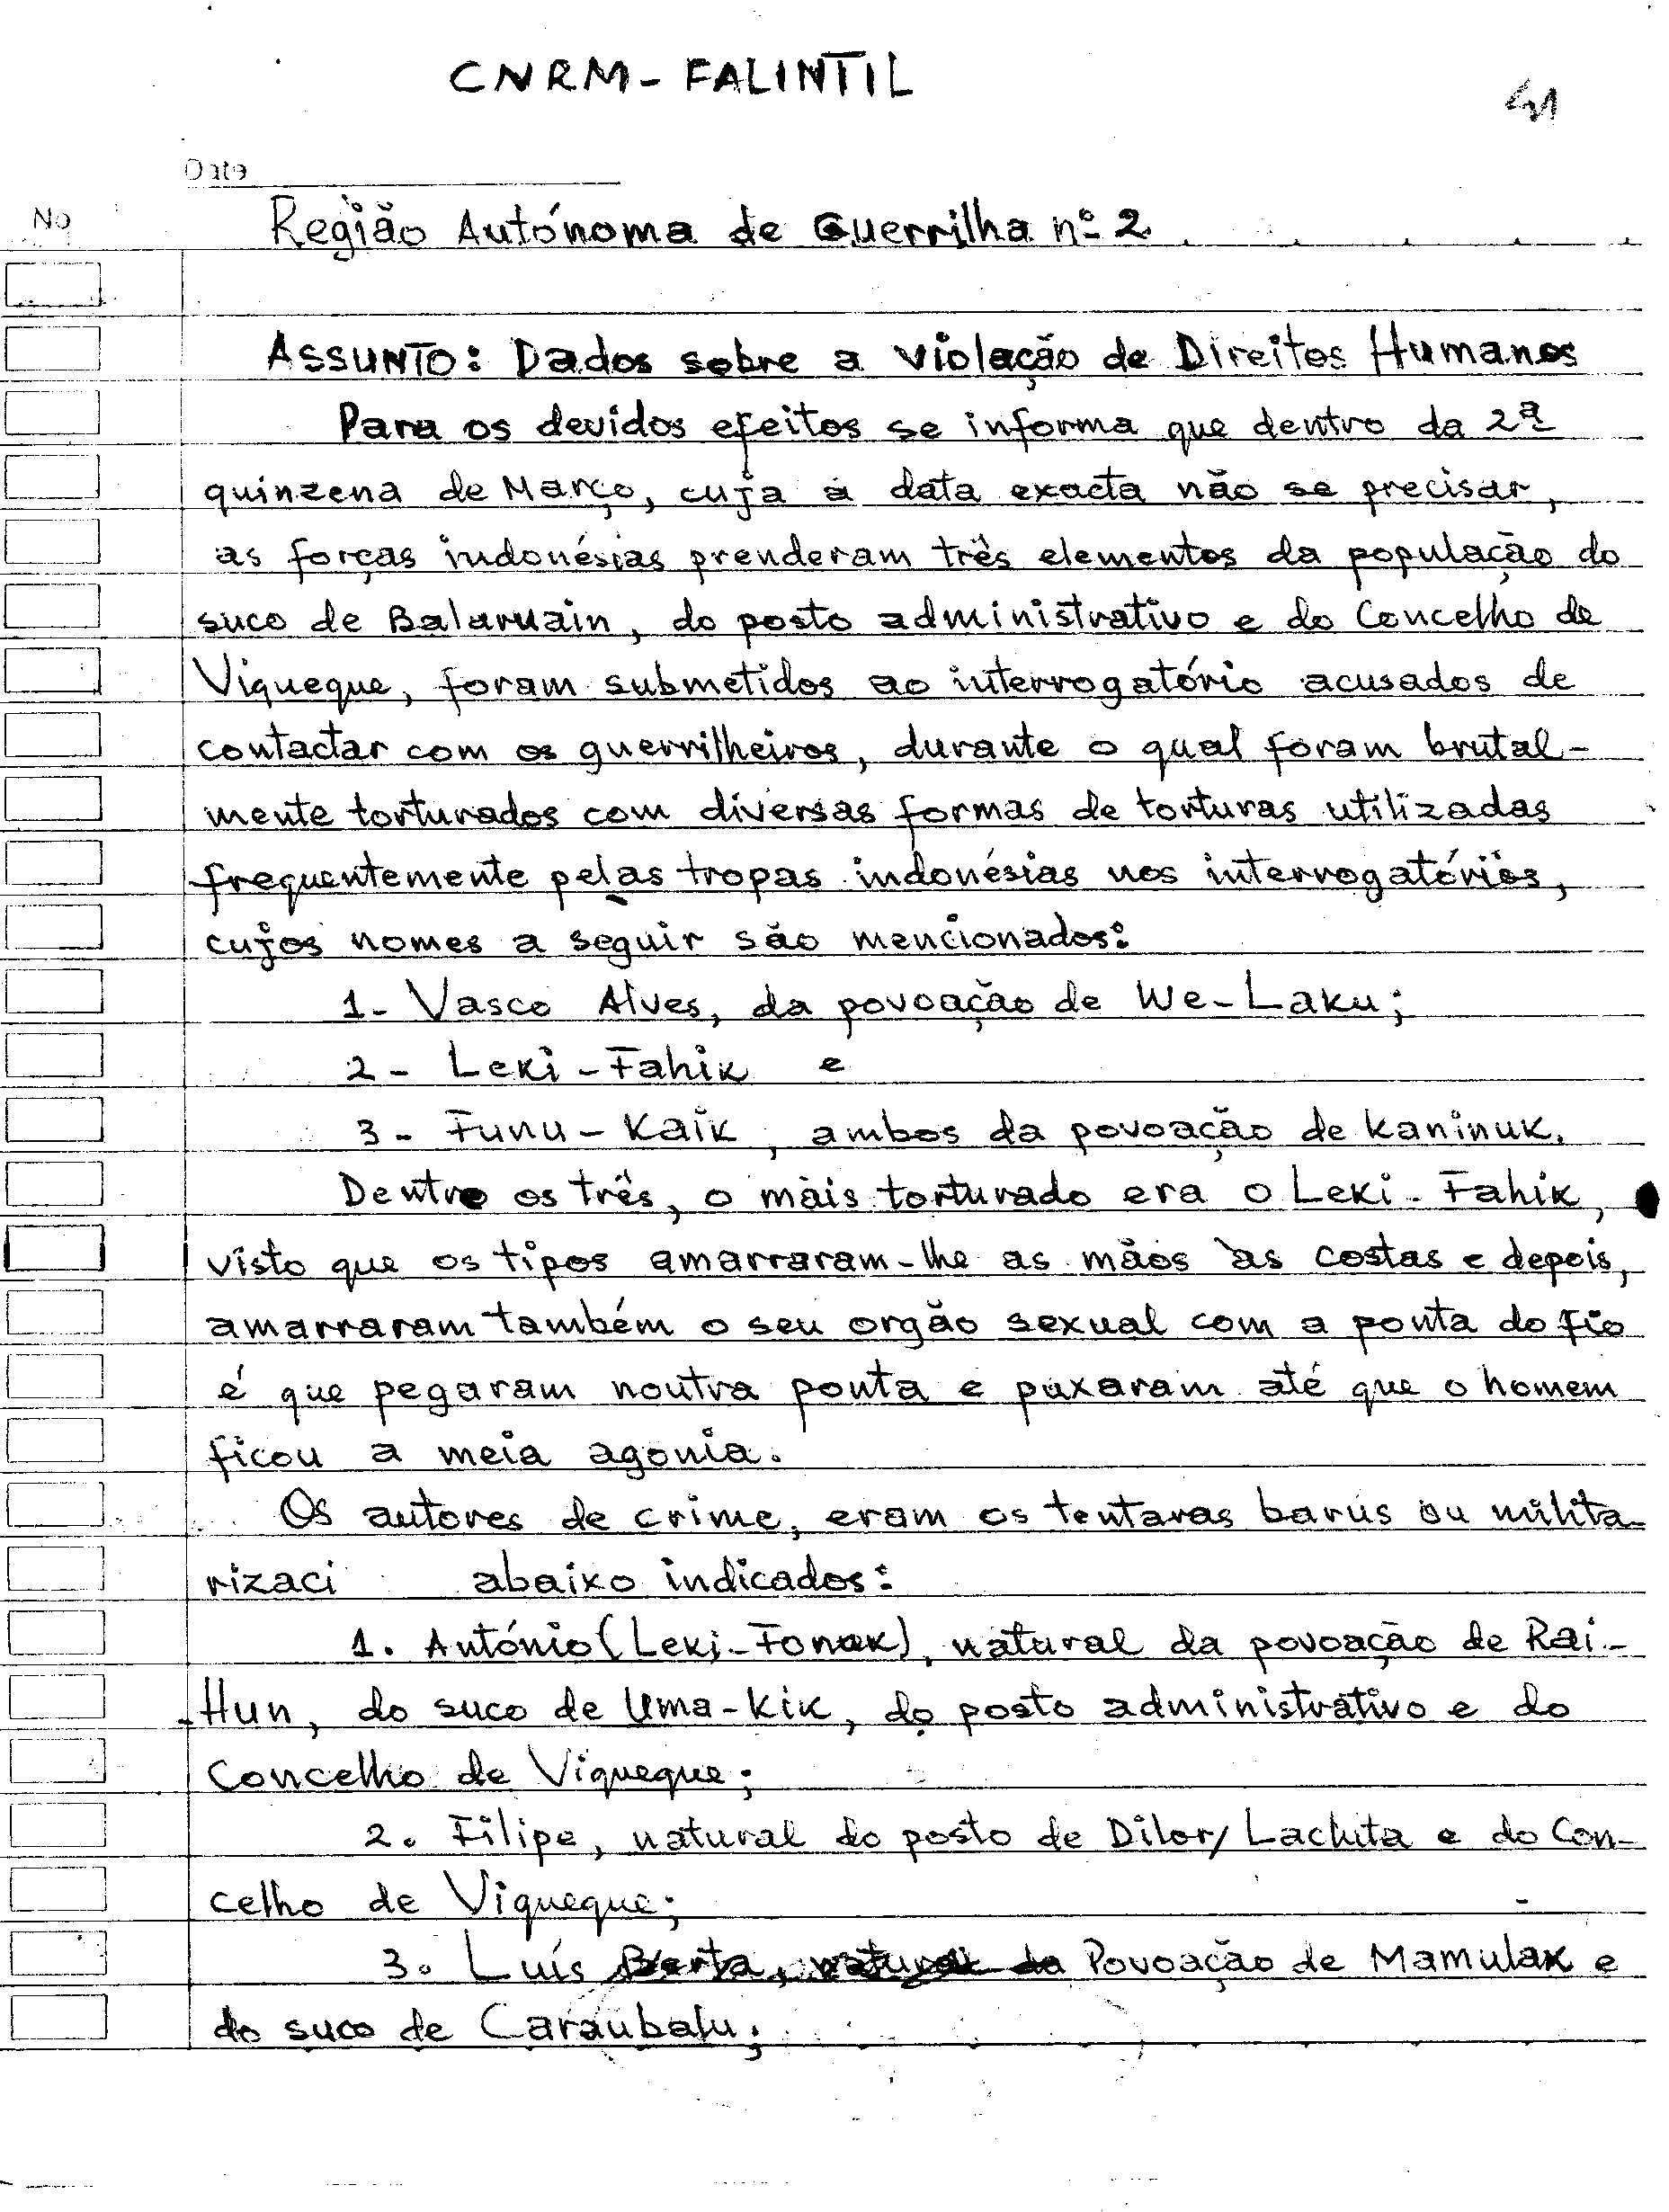 CNRM - FALINTIL
41
Date
No
Região Autónoma de Guerrilha nº 2
ASSUNTO: Dados sobre a violação de Direitos Humanos
Para os devidos efeitos se informa que dentro da 2ª
quinzena de Março, cuja a data exacta não se precisar,
as forças indonésias prenderam três elementos da população do
suco de Balaruain, do posto administrativo e do Concelho de
Viqueque, foram submetidos ao interrogatório acusados de
contactar com os guerrilheiros, durante o qual foram brutal-
mente torturados com diversas formas de torturas utilizadas
frequentemente pelas tropas indonésias nos interrogatórios,
cujos nomes a seguir são mencionados:
1- Vasco Alves, da povoação de We-Laku;
2- Leki-Fahik e
3- Funu-Kaik, ambos da povoação de Kaninuk.
Dentro os três, o mais torturado era o Leki-Fahik,
visto que os tipos amarraram-lhe as mãos às costas e depois,
amarraram também o seu orgão sexual com a ponta do fio
é que pegaram noutra ponta e puxaram até que o homem
ficou a meia agonia.
Os autores de crime, eram os tentaras barús ou milita-
rizaci abaixo indicados:
1. António (Leki-Fonak), natural da povoação de Rai-
-Hun, do suco de Uma-Kik, do posto administrativo e do
Concelho de Viqueque;
2. Filipe, natural do posto de Dilor/Lacluta e do Con-
celho de Viqueque;
3. Luís Povoação de Mamulak e
do suco de Caraubalu;